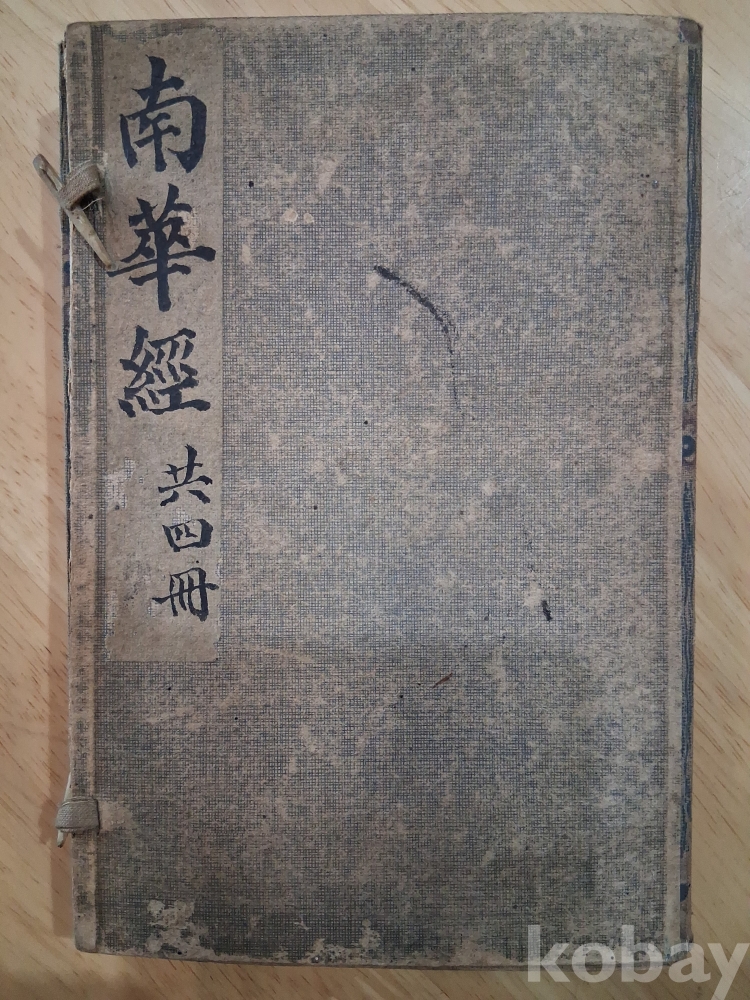 南華經
共四冊
kobay